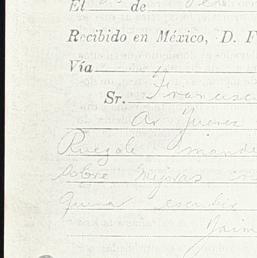 El de
Recibido en México, D. F
Vía
Sr. Francisco
Av Juarez
Ruegole mande
sobre mejoras
quiera escribir
Jaim